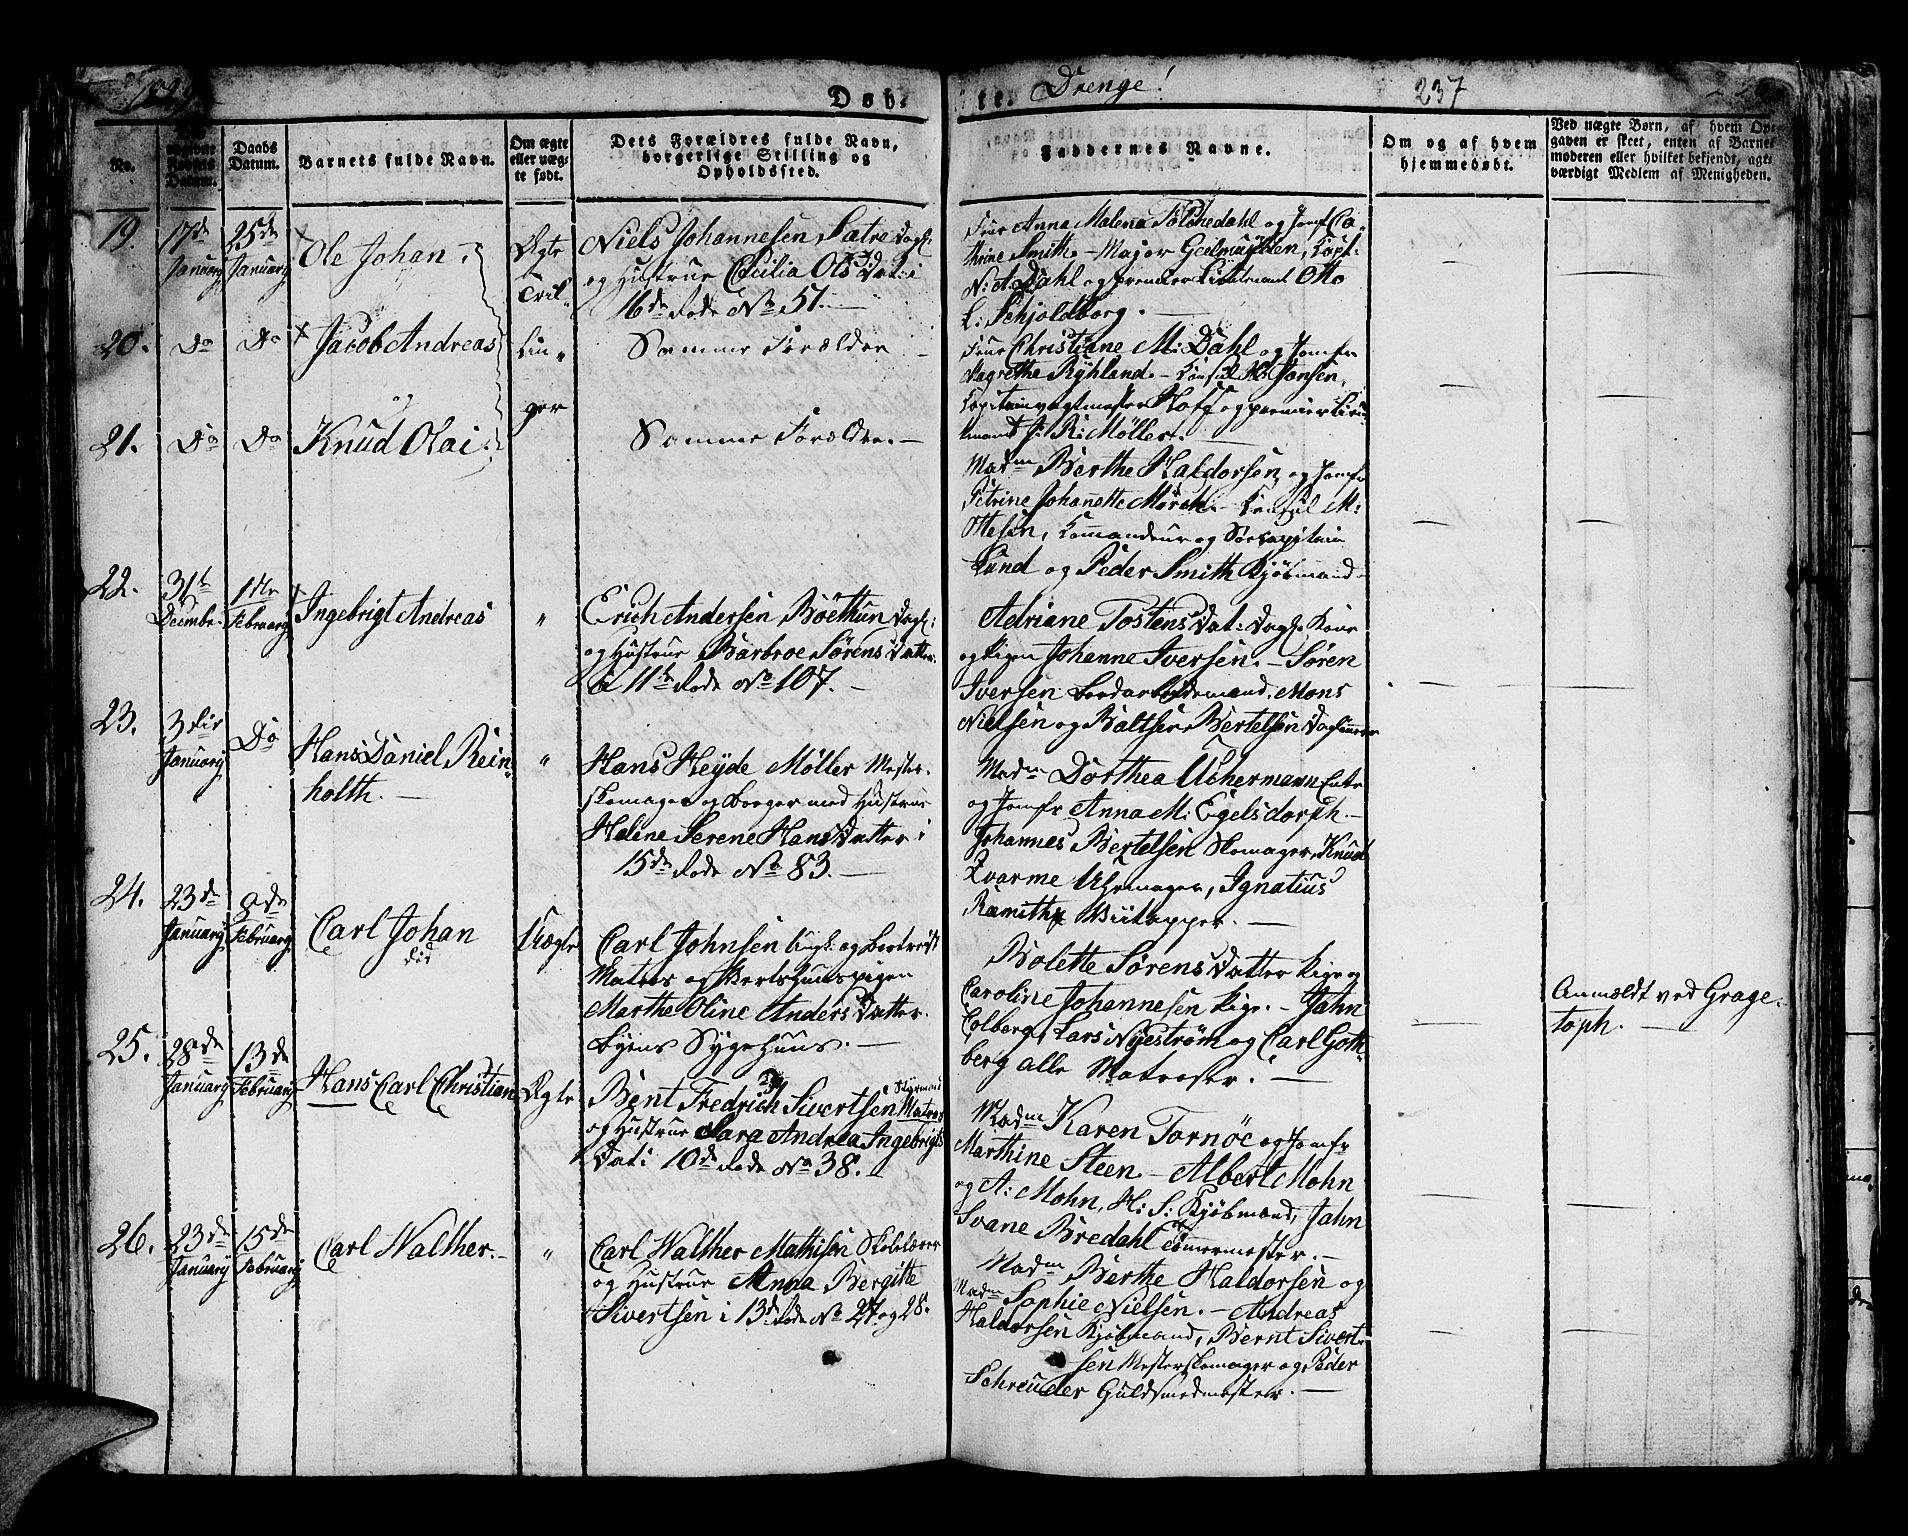 1829.
Døb-
te.
Drenge!
237
No.
Fødsels Datum.
Daabs Datum.
Barnets fulde Navn.
Om ægte eller uægte født.
Dets Forældres fulde Navn, borgerlige Stilling og Opholdssted.
Faddernes Navne.
Om og af hvem hjemmedøbt.
Ved uægte Børn, af hvem Opgaven er skeet, enten af Barnemoderen eller hvilket bekjendt, agtværdigt Medlem af Menigheden.
19.
17de January
25de January
Ole Johan.
Ægte
Tril-
Niels Johannesen Satre Dagk:
og Hustrue Cecilia Ols Dat: i
16de Rode No 51.
Frue Anna Malena Tolchedahl og Jomf Ca-
thrine Smith. - Major Geelmuyden, Capt:
N: A: Dahl og premier Lieutenant Otto
L: Schjoldborg.
20.
Do
Do
Jacob Andreas
lin-
Samme Forældre
Frue Christiane M: Dahl og Jomfr
Dagrethe Ryhland. - Consul H: Jansen,
Capitainvagtmester Hoff og premier Lieu-
tenant J: R: Møller.
21.
Do
Do
og
Knud Olai.
ger
Samme Forældre. -
Madm Berthe Haldorsen og Jomfr
Petrine Johanette Mørch. - Consul M:
Ottesen, Commandeur og Søecapitain
Lund og Peder Smith Kjøbmand.
22.
31te Decembr.
1ste February
Ingebrigt Andreas
"
Erich Andersen Böethun Dagk:
og Hustrue Barbroe Sørens Datter
i 11te Rode No 107. -
Adriane Tostens Dat: Dagk: Kone
og Pigen Johanne Iversen. - Søren
Iversen Bordarbeidsmand, Mons
Nielsen og Baltser Bertelsen Dagkarer
23.
3die January
Do
Hans Daniel Rein-
holth. -
"
Hans Heyde Møller Mester-
skomager og Borger med Hustrue
Helene Serene Hans Datter i
15de Rode No 83. -
Madm Dorthea Uchermann Enke
og Jomfr Anna M: Egelsdorph. -
Johannes Bertelsen Skomager, Knud
Zvarme Uhrmager, Ignatius
Ramith Viintapper. -
24.
23de January
8de February
Carl Johan
död
Uægte
Carl Johnsen Ungk: og bortreist
Matros og Vertshuuspigen
Marthe Oline Anders Datter.
Byens Sygehuus. -
Bolette Sørens Datter Pige og
Caroline Johannesen Pige. - Jahn
Colberg, Lars Nyestrøm og Carl Goth-
berg alle Matroser. -
Anmeldt ved Grage-
toph. -
25.
28de January
13de February
Hans Carl Christian
Ægte
Bent Fredrich Sivertsen Matros
Styrmand
og Hustrue Sara Andrea Ingebrigts
Dat: i 10de Rode No 38. -
Madm Karen Tornöe og Jomfr
Marthine Steen. - Albert Mohn
og A: Mohn, H: S: Kjøbmænd, Jahn
Svane Bredahl Tömmermester. -
26.
23de January
15de February
Carl Walther. -
"
Carl Walther Mathisen Skolelærer
og Hustrue Anna Bergitte
Sivertsen i 13de Rode No 27 og 28.
Madm Berthe Haldorsen og
Madm Sophie Nielsen. - Andreas
Haldorsen Kjøbmand, Bernt Sivert-
sen Mesterskomager og Peder
Schreuder Guldsmedmester. -